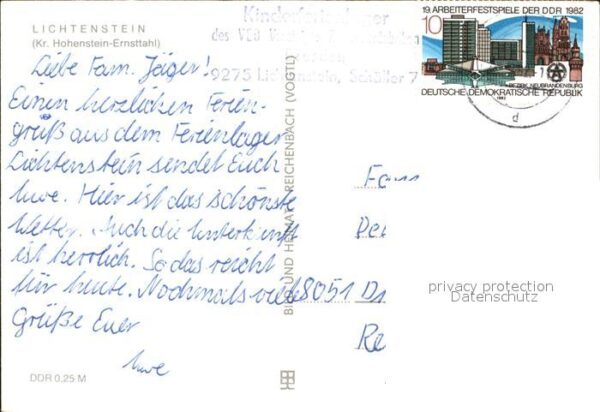 LICHTENSTEIN
(Kr. Hohenstein-Ernstthal)
Kinderferienlager
des VEB
9275 Lichtenstein, Schäller 7
19. ARBEITERFESTSPIELE DER DDR 1982
10
BEZIRK NEUBRANDENBURG
DEUTSCHE DEMOKRATISCHE REPUBLIK
1982
d
Liebe Fam. Jäger!
Einen herzlichen Ferien-
gruß aus dem Ferienlager
Lichtenstein sendet Euch
Uwe. Hier ist das schönste
Wetter. Auch die Unterkunft
ist herrlich. So das reicht
für heute. Nochmals viele
Grüße Euer
Uwe
BILD UND HEIMAT REICHENBACH (VOGTL)
Fam
8051 D
Re
privacy protection
Datenschutz
DDR 0,25 M